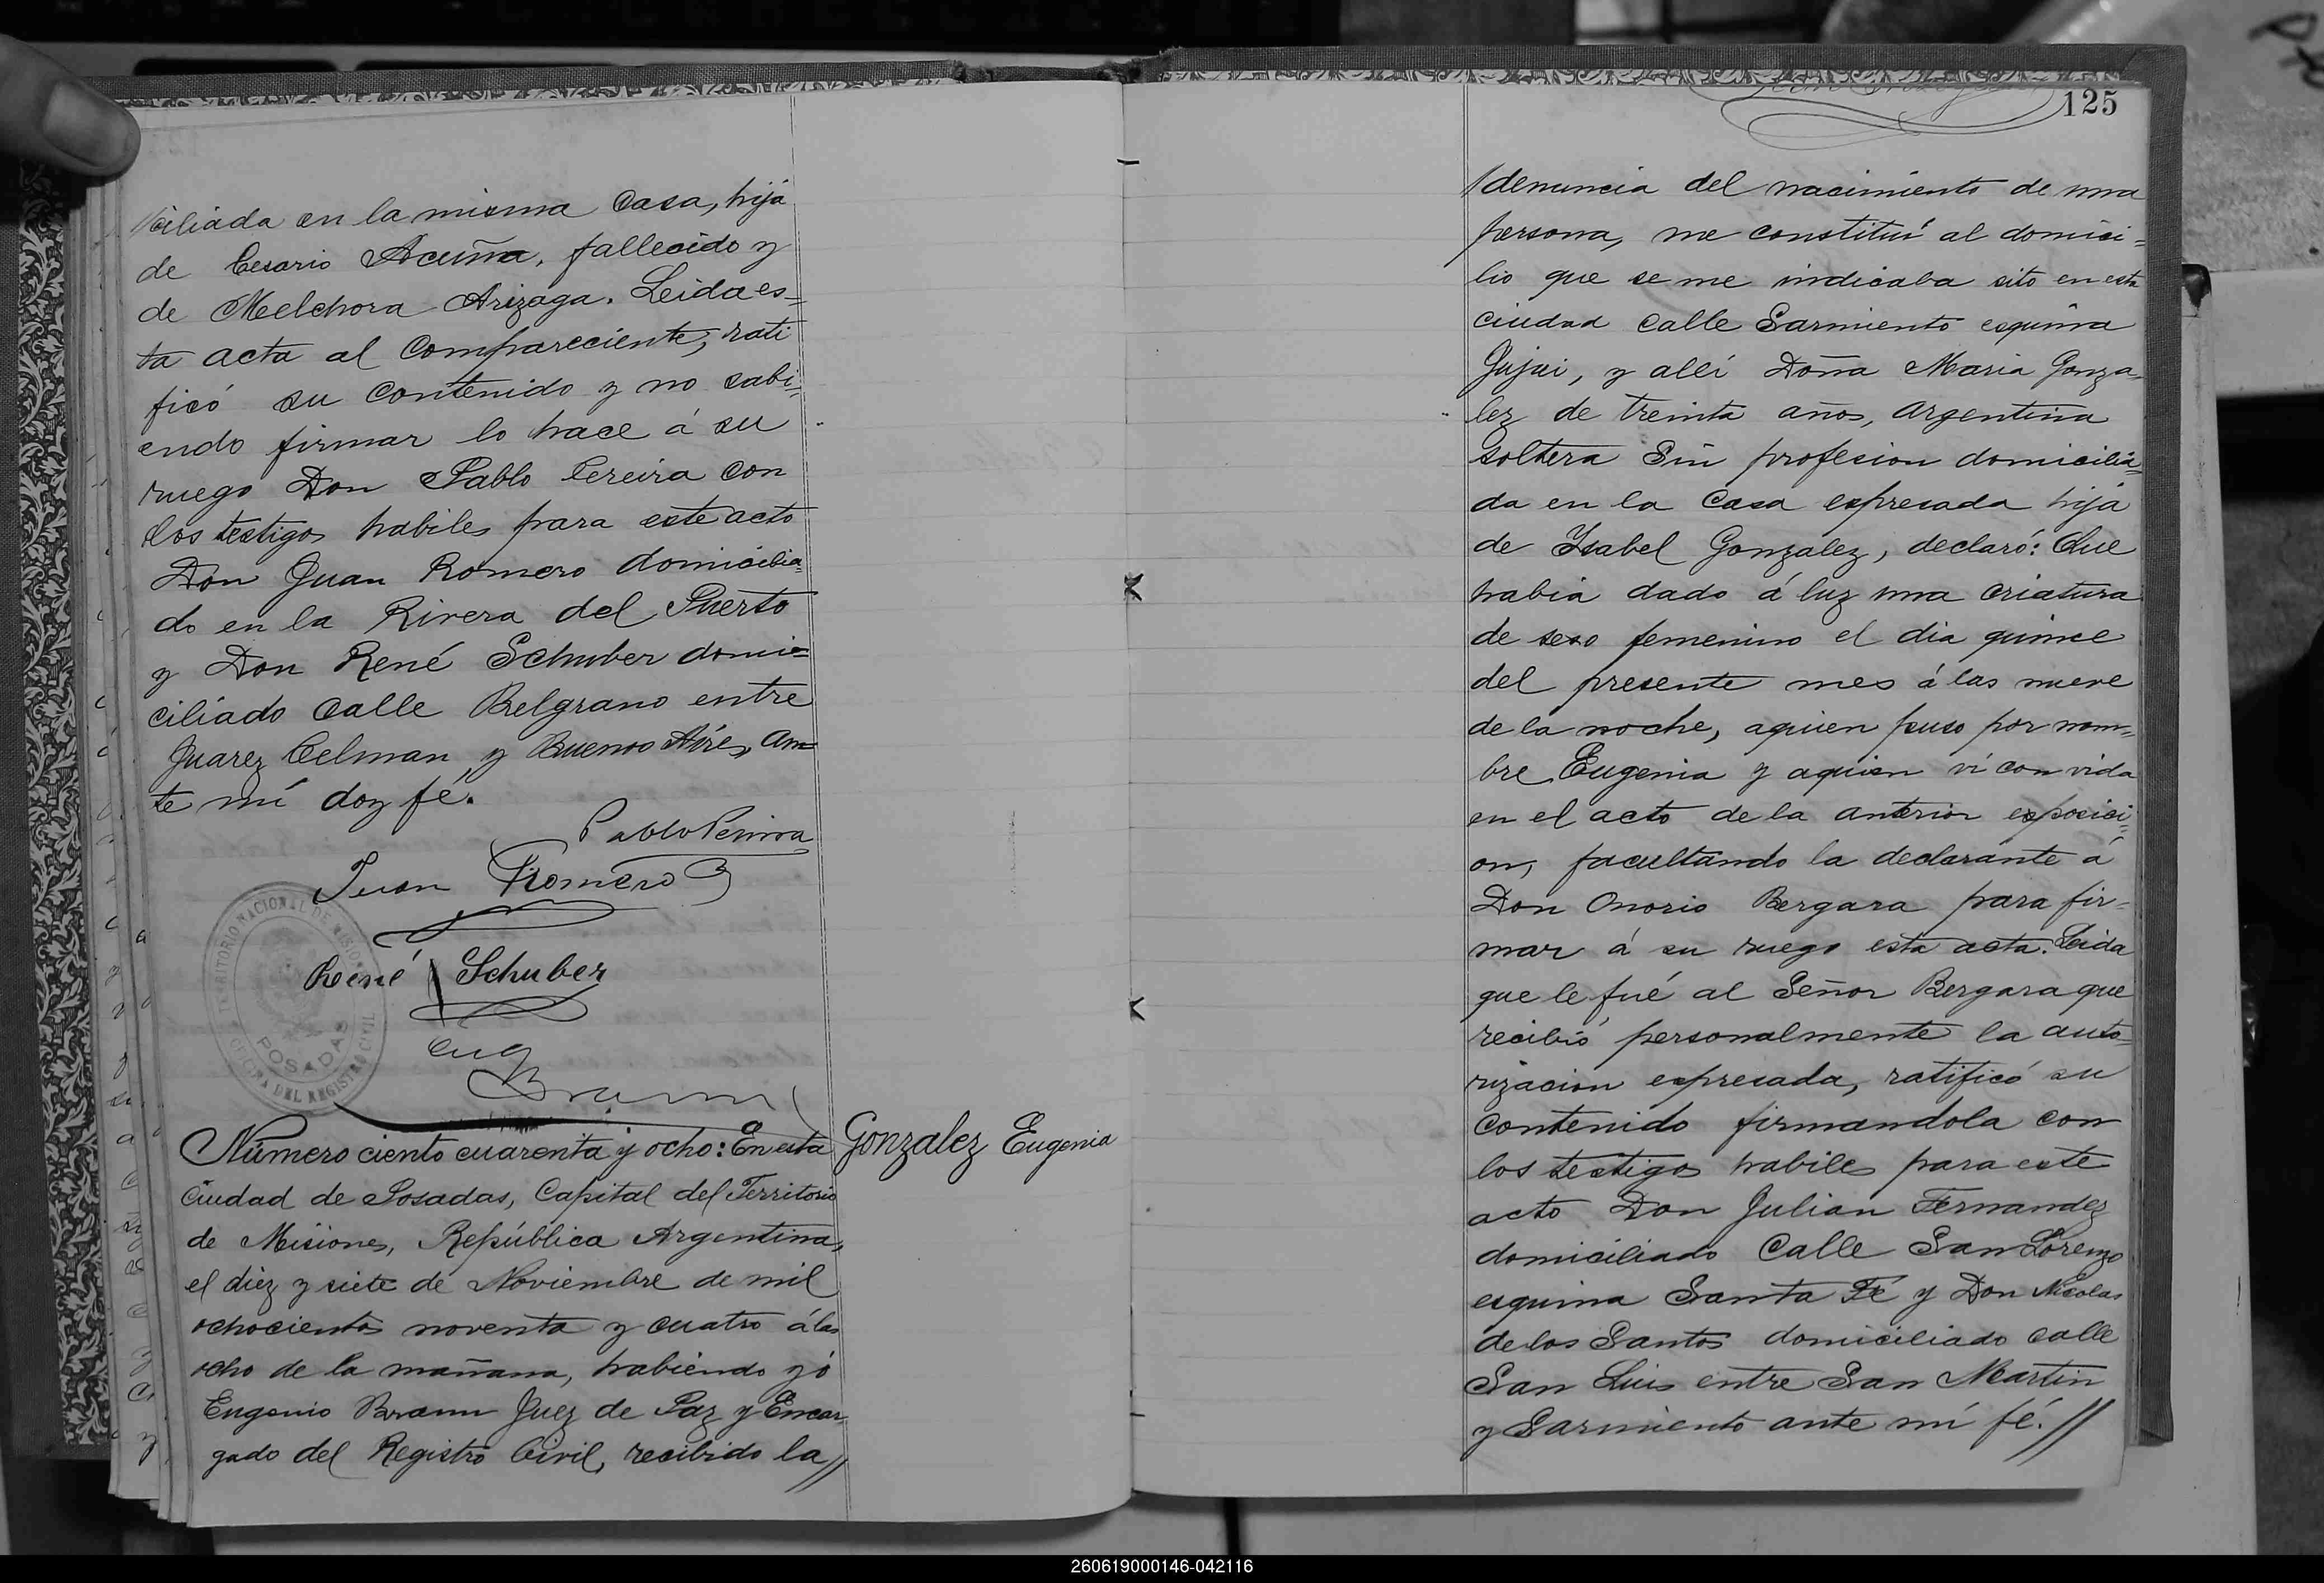 /ciliada en la misma casa, hija
de Cesario Acuña, fallecido y
de Melchora Arizaga. Leida es=
ta acta al compareciente, rati
ficó su contenido y no sabi=
endo firmar lo hace á su
ruego Don Pablo Pereira con
los testigos habiles para este acto
Don Juan Romero domicilia=
do en la Rivera del Puerto
y Don René Schuber domi=
ciliado calle Belgrano entre
Juarez Celman y Buenos Aires, an=
te mí doy fé.
Pablo Pereira
Juan Romero
René Schuber
Eug
Braun
TERRITORIO NACIONAL DE MISIONES
POSADAS
OFICINA DEL REGISTRO CIVIL
Número ciento cuarenta y ocho: En esta
Gonzalez Eugenia
Ciudad de Posadas, Capital del Territorio
de Misiones, República Argentina,
el diez y siete de Noviembre de mil
ochocientos noventa y cuatro á las
ocho de la mañana, habiendo yó
Eugenio Braun Juez de Paz y Encar=
gado del Registro Civil, recibido la//
125
/denuncia del nacimiento de una
persona, me constituí al domici=
lio que se me indicaba sito en esta
ciudad calle Sarmiento esquina
Jujui, y allí Doña Maria Gonza=
lez de treinta años, argentina
soltera Sin profesion domicilia=
da en la casa espresada hija
de Ysabel Gonzalez, declaró: Que
habia dado á luz una criatura
de sexo femenino el dia quince
del presente mes á las nueve
de la noche, aquien puso por nom=
bre Eugenia y aquien ví con vida
en el acto de la anterior esposici=
on, facultando la declarante á
Don Onorio Bergara para fir=
mar á su ruego esta acta. Leida
que le fué al Señor Bergara que
recibió personalmente la auto=
rizacion espresada, ratificó su
contenido firmandola con
los testigos habiles para este
acto Don Julian Fernandez
domiciliado Calle San Lorenzo
esquina Santa Fé y Don Nicolas
de los Santos domiciliado calle
San Luis entre San Martin
y Sarmiento ante mí fé.//
260619000146-042116